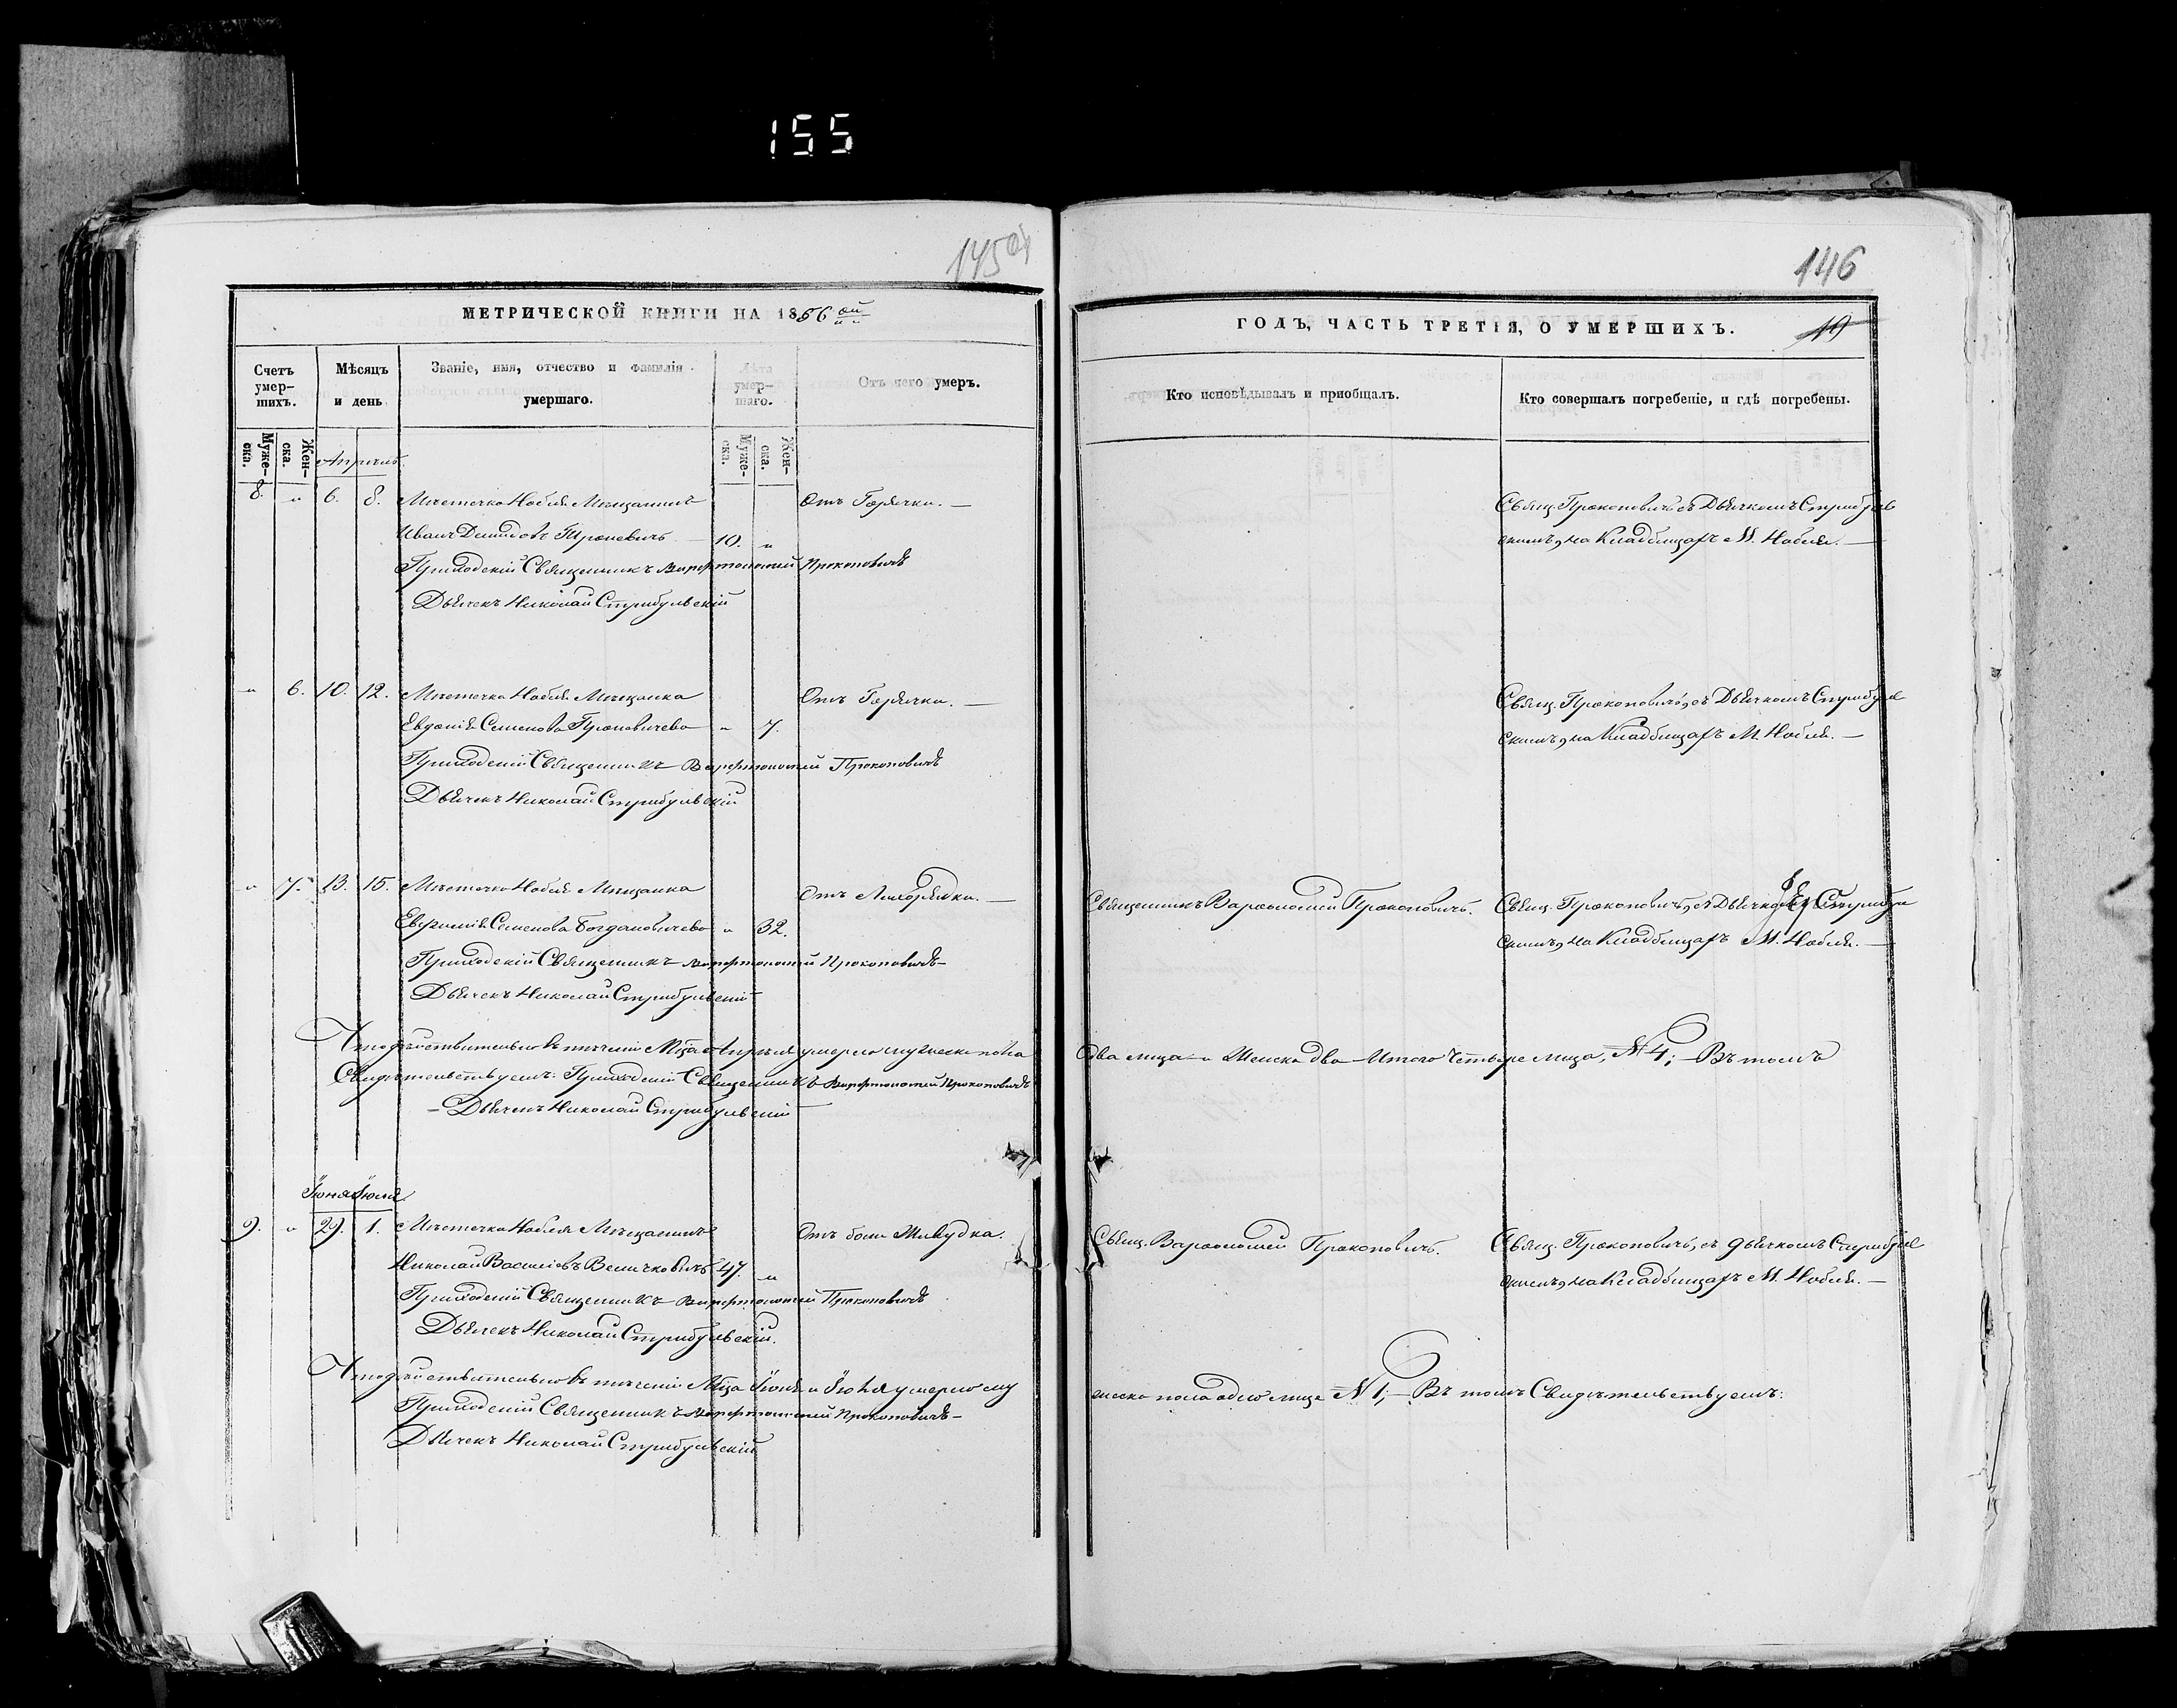 155
145об
МЕТРИЧЕСКОЙ КНИГИ НА 1866 ой
Счетъ умер-шихъ.
Мѣсяцъ и день
Званіе, имя, отчество и фамилія умершаго.
Лѣта умер-шаго.
Отъ чего умеръ.
Муже-ска.
Жен-ска.
Апрѣль
Муже-ска.
Жен-ска.
8. „ 6. 8. Мѣстечка Нобля Мѣщанинъ Отъ Горячки. —
Иванъ Демидовъ 10. „
Приходскій Священникъ Варфоломей Прокоповичъ
Дьячекъ Николай Стрибульскій
„ 6. 10. 12. Мѣстечка Нобля Мѣщанка Отъ Горячки. —
Семенова „ 7.
Приходскій Священникъ Варфоломей Прокоповичъ
Дьячекъ Николай Стрибульскій
„ 7. 13. 15. Мѣстечка Нобля Мѣщанка Отъ Лихорадки. —
Семенова Богдановичева „ 32.
Приходскій Священникъ Варфоломей Прокоповичъ
Дьячекъ Николай Стрибульскій
Что дѣйствительно въ теченіи Мца Апрѣля умерло мужеска пола
Свидѣтельствуемъ: Приходскій Священникъ Варфоломей Прокоповичъ
— Дьячекъ Николай Стрибульскій
Іюня Іюля
9. „ 29. 1. Мѣстечка Нобля Мѣщанинъ Отъ боли Желудка.
Николай Васильевъ Величковичъ 47. „
Приходскій Священникъ Варфоломей Прокоповичъ
Дьячекъ Николай Стрибульскій.
Что дѣйствительно въ теченіи Мца Іюня и Іюля умерло му
Приходскій Священникъ Варфоломей Прокоповичъ
Дьячекъ Николай Стрибульскій
146
ГОДЪ, ЧАСТЬ ТРЕТІЯ, О УМЕРШИХЪ. 19
Кто исповѣдывалъ и пріобщалъ.
Кто совершалъ погребеніе, и гдѣ погребены.
Свящ. Прокоповичъ съ Дьячкомъ Стрибуль
скимъ, на Кладбищахъ М. Нобля. —
Свящ. Прокоповичъ, съ Дьячкомъ Стрибул
скимъ, на Кладбищахъ М. Нобля. —
Священникъ Варфоломей Прокоповичъ. Свящ. Прокоповичъ, съ Стрибул
скимъ, на Кладбищахъ М. Нобля. —
два лица и Женска два Итого Четыре лица, № 4; — Въ томъ
Свящ. Варфоломей Прокоповичъ. Свящ. Прокоповичъ, съ дьячкомъ Стрибул
скимъ, на Кладбищахъ М. Нобля. —
жеска пола одно лице № 1; — Въ томъ Свидѣтельствуемъ: